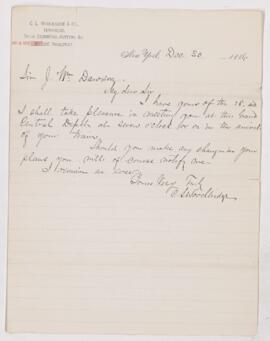 C. L. Woodbridge & Co.
New York Dec. 30 188
Sir J. Wm Dawson
My dear Sir
I have yours of the 18. inst
I shall take pleasure in meeting you at the Grand
Central Depot at seven o'clock or on the arrival
of your train.
Should you make any change in your
plans you will of course notify me.
I remain as ever
Yours Very Truly
C L Woodbridge